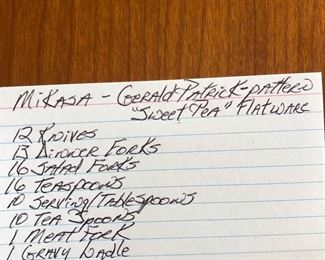 Mikasa - Gerald Patrick - pattern
"Sweet Pea" Flatware
12 Knives
13 Dinner Forks
16 Salad Forks
16 Teaspoons
10 Serving/Tablespoons
10 Tea Spoons
1 Meat Fork
1 Gravy Ladle